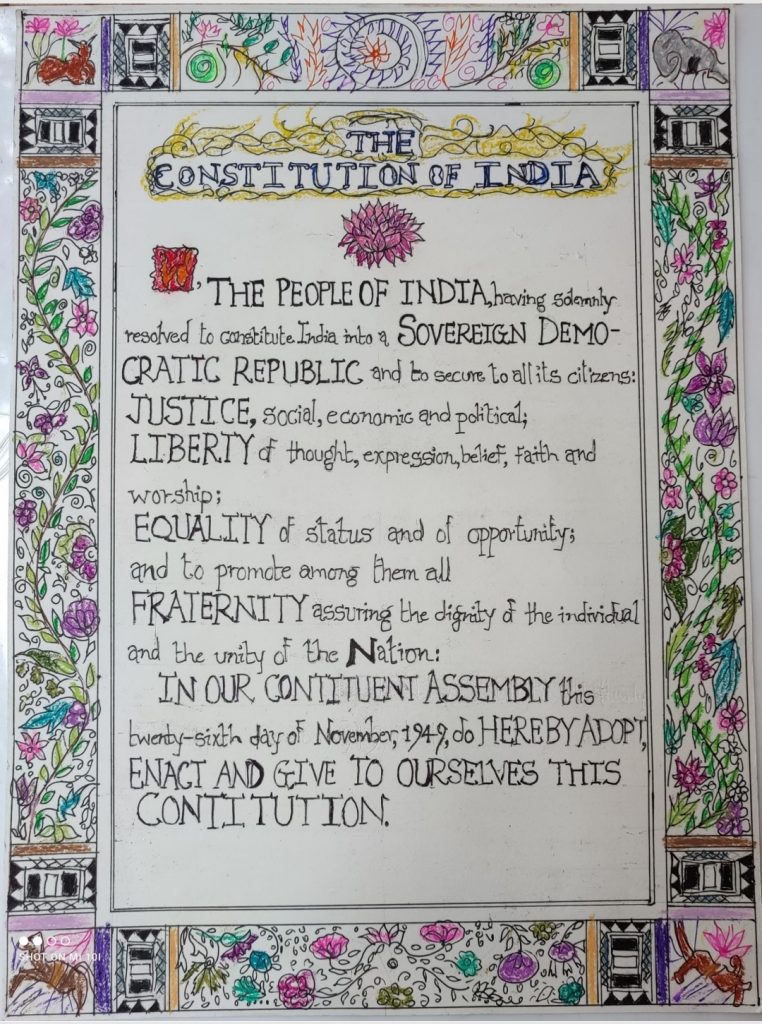 THE
CONSTITUTION OF INDIA
WE, THE PEOPLE OF INDIA, having solemnly
resolved to constitute India into a SOVEREIGN DEMO-
CRATIC REPUBLIC and to secure to all its citizens:
JUSTICE, social, economic and political;
LIBERTY of thought, expression, belief, faith and
worship;
EQUALITY of status and of opportunity;
and to promote among them all
FRATERNITY assuring the dignity of the individual
and the unity of the Nation:
IN OUR CONTITUENT ASSEMBLY this
twenty-sixth day of November, 1949, do HEREBY ADOPT,
ENACT AND GIVE TO OURSELVES THIS
CONTITUTION.
SHOT ON MI 10I